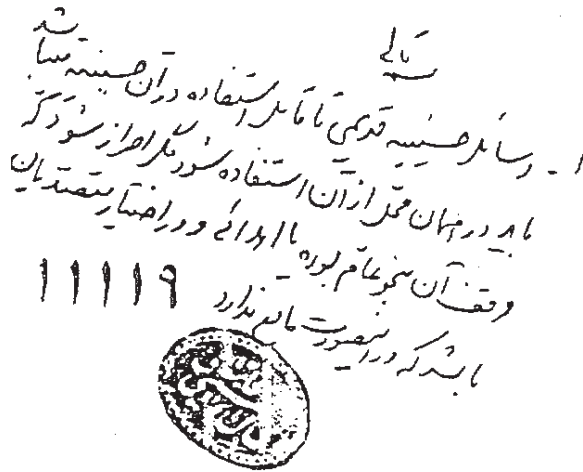 بتعالی
۱ـ وسائل حسینیه قدیمی تا قابل استفاده در آن حسینیه میباشد
باید در همان محل از آن استفاده شود مگر احراز شود که
وقف آن بنحو عام بوده یا اهدائی و در اختیار متصدیان
باشد که در اینصورت مانع ندارد
۱۱۱۱۹